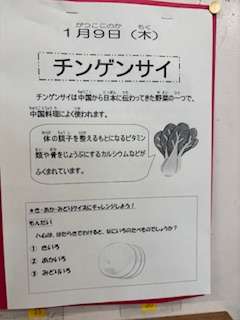 がつここのか もく
1月9日（木）
チンゲンサイ
チンゲンサイは中国から日本に伝わってきた野菜の一つで、
中国料理によく使われます。
体の調子を整えるもとになるビタミン
類や骨をじょうぶにするカルシウムなどが
ふくまれています。
★き・あか・みどりクイズにチャレンジしよう！
もんだい
ハムは、はたらきでわけると、なにいろのたべものでしょうか？
① きいろ
② あかいろ
③ みどりいろ